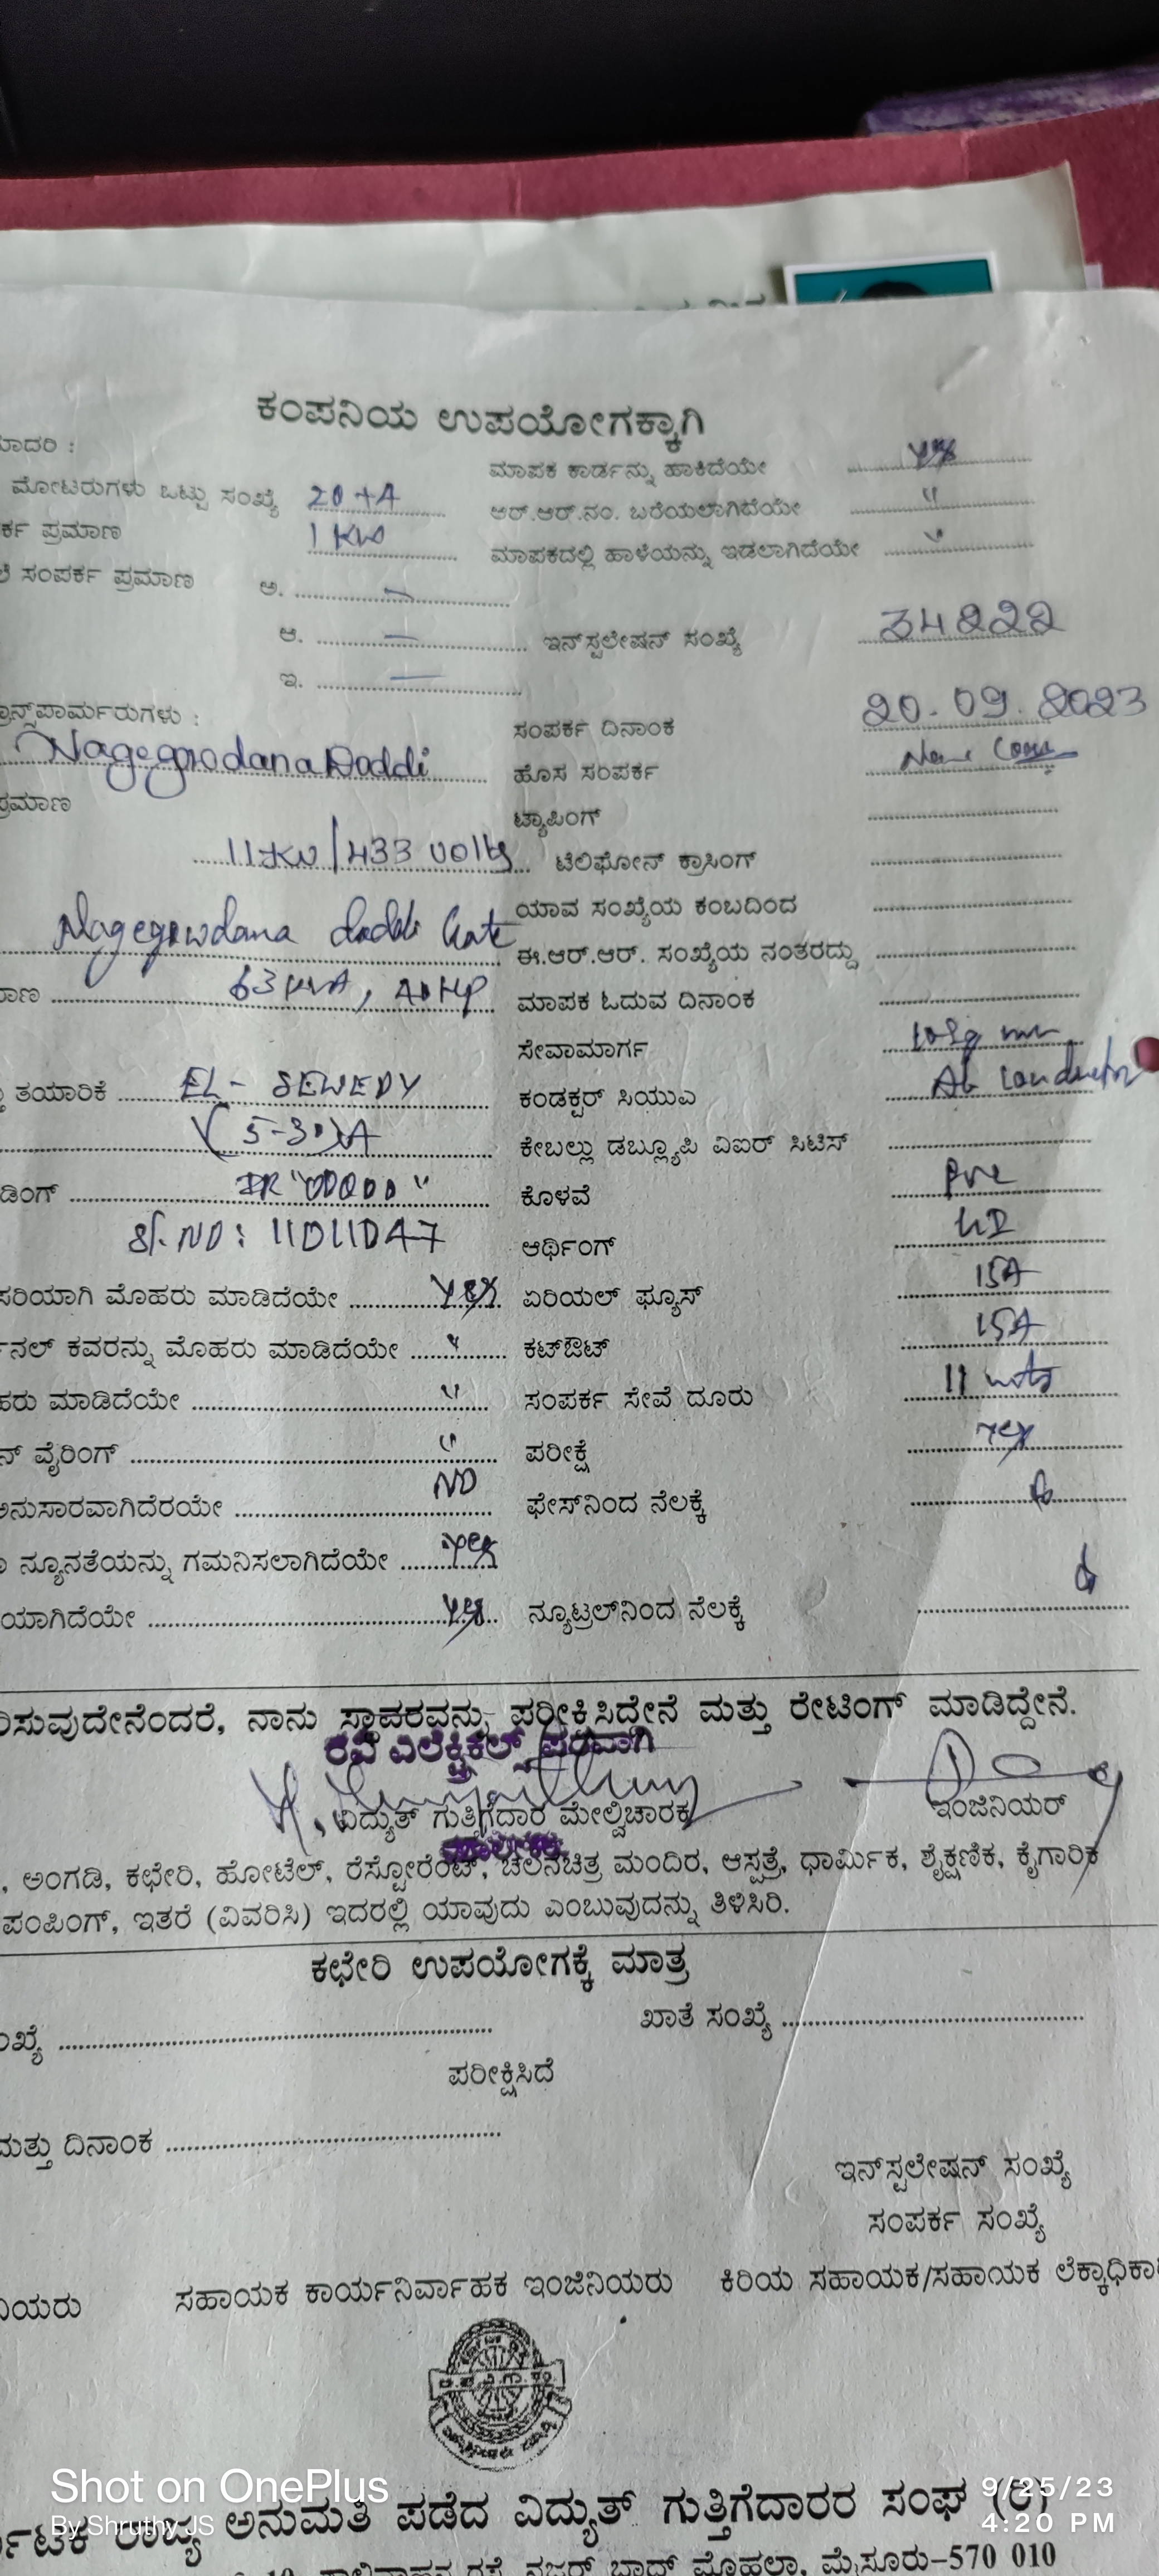 ಕಂಪನಿಯ ಉಪಯೋಗಕ್ಕಾಗಿ
ಮಾದರಿ :
ಮಾಪಕ ಕಾರ್ಡನ್ನು ಹಾಕಿದೆಯೇ yes
ಮೋಟರುಗಳು ಒಟ್ಟು ಸಂಖ್ಯೆ 20+A
ಆರ್.ಆರ್.ನಂ. ಬರೆಯಲಾಗಿದೆಯೇ "
ರ್ಕ ಪ್ರಮಾಣ 1 KW
ಮಾಪಕದಲ್ಲಿ ಹಾಳೆಯನ್ನು ಇಡಲಾಗಿದೆಯೇ "
ಸಂಪರ್ಕ ಪ್ರಮಾಣ ಅ. —
ಆ. — ಇನ್‌ಸ್ಟಲೇಷನ್ ಸಂಖ್ಯೆ 34222
ಇ. —
ಟ್ರಾನ್ಸ್‌ಪಾರ್ಮರುಗಳು :
ಸಂಪರ್ಕ ದಿನಾಂಕ 20.09.2023
NagegowdanaDoddi ಹೊಸ ಸಂಪರ್ಕ
ಪ್ರಮಾಣ ಟ್ಯಾಪಿಂಗ್
433 volts ಟೆಲಿಫೋನ್ ಕ್ರಾಸಿಂಗ್
ಯಾವ ಸಂಖ್ಯೆಯ ಕಂಬದಿಂದ
Nagegowdana doddi Gate ಈ.ಆರ್.ಆರ್. ಸಂಖ್ಯೆಯ ನಂತರದ್ದು
63 KVA, ಮಾಪಕ ಓದುವ ದಿನಾಂಕ
ಸೇವಾಮಾರ್ಗ 10sq mm
ತಯಾರಿಕೆ EL- SEWEDY ಕಂಡಕ್ಟರ್ ಸಿಯುಎ conductor
(5-30)A ಕೇಬಲ್ಲು ಡಬ್ಲ್ಯೂಪಿ ವಿಐಆರ್ ಸಿಟಿಸ್
ಡಿಂಗ್ IR "00000" ಕೊಳವೆ pvc
Sl.NO: 11011047 ಆರ್ಥಿಂಗ್
ಸರಿಯಾಗಿ ಮೊಹರು ಮಾಡಿದೆಯೇ yes ಏರಿಯಲ್ ಫ್ಯೂಸ್ 15A
ನಲ್ ಕವರನ್ನು ಮೊಹರು ಮಾಡಿದೆಯೇ " ಕಟ್‌ಔಟ್ 15A
ಹರು ಮಾಡಿದೆಯೇ " ಸಂಪರ್ಕ ಸೇವೆ ದೂರು 11 mts
ನ್ ವೈರಿಂಗ್ " ಪರೀಕ್ಷೆ yes
ಅನುಸಾರವಾಗಿದೆರಯೇ NO ಫೇಸ್‌ನಿಂದ ನೆಲಕ್ಕೆ
ನ್ಯೂನತೆಯನ್ನು ಗಮನಿಸಲಾಗಿದೆಯೇ yes
ಯಾಗಿದೆಯೇ yes ನ್ಯೂಟ್ರಲ್‌ನಿಂದ ನೆಲಕ್ಕೆ
ರಿಸುವುದೇನೆಂದರೆ, ನಾನು ಸ್ಥಾವರವನ್ನು ಪರೀಕ್ಷಿಸಿದ್ದೇನೆ ಮತ್ತು ರೇಟಿಂಗ್ ಮಾಡಿದ್ದೇನೆ.
ರವಿ ಎಲೆಕ್ಟ್ರಿಕಲ್ಸ್ ಪರವಾಗಿ
ವಿದ್ಯುತ್ ಗುತ್ತಿಗೆದಾರ ಮೇಲ್ವಿಚಾರಕ ಇಂಜಿನಿಯರ್
, ಅಂಗಡಿ, ಕಛೇರಿ, ಹೋಟೆಲ್, ರೆಸ್ಟೋರೆಂಟ್, ಚಲನಚಿತ್ರ ಮಂದಿರ, ಆಸ್ಪತ್ರೆ, ಧಾರ್ಮಿಕ, ಶೈಕ್ಷಣಿಕ, ಕೈಗಾರಿಕ
ಪಂಪಿಂಗ್, ಇತರೆ (ವಿವರಿಸಿ) ಇದರಲ್ಲಿ ಯಾವುದು ಎಂಬುವುದನ್ನು ತಿಳಿಸಿರಿ.
ಕಛೇರಿ ಉಪಯೋಗಕ್ಕೆ ಮಾತ್ರ
ಂಖ್ಯೆ ಖಾತೆ ಸಂಖ್ಯೆ
ಪರೀಕ್ಷಿಸಿದೆ
ಮತ್ತು ದಿನಾಂಕ
ಇನ್‌ಸ್ಟಲೇಷನ್ ಸಂಖ್ಯೆ
ಸಂಪರ್ಕ ಸಂಖ್ಯೆ
ನಿಯರು ಸಹಾಯಕ ಕಾರ್ಯನಿರ್ವಾಹಕ ಇಂಜಿನಿಯರು ಕಿರಿಯ ಸಹಾಯಕ/ಸಹಾಯಕ ಲೆಕ್ಕಾಧಿಕಾ
Shot on OnePlus
By Shruthy JS
9/25/23
4:20 PM
ರ್ನಾಟಕ ರಾಜ್ಯ ಅನುಮತಿ ಪಡೆದ ವಿದ್ಯುತ್ ಗುತ್ತಿಗೆದಾರರ ಸಂಘ (ರಿ)
ರಸ್ತೆ, ನಜರ್ ಬಾದ್ ಮೊಹಲ್ಲಾ, ಮೈಸೂರು-570 010